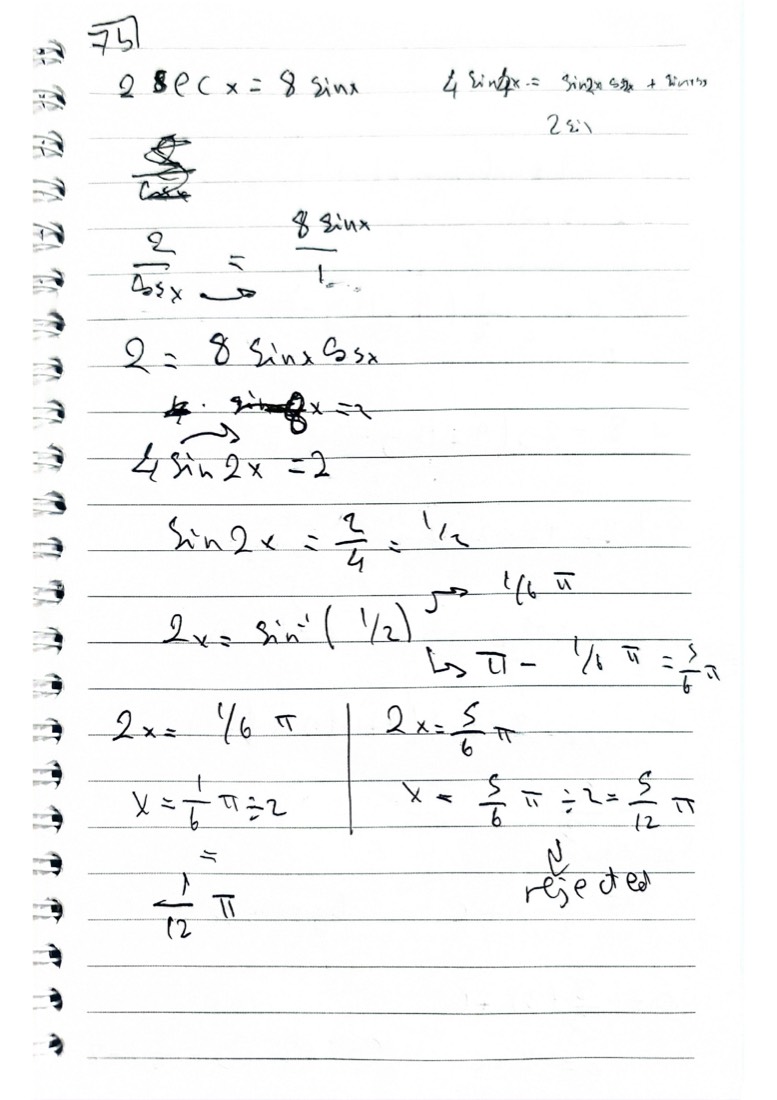 7b)
2 sec x = 8 sinx
4 sin4x = sin2x cos2x + sin
2 sin
cosx
2/cosx = 8 sinx/1
2 = 8 sinx cosx
x = 2
4 sin 2x = 2
sin 2x = 2/4 = 1/2
2x = sin⁻¹ (1/2) → 1/6 π
↳ π - 1/6 π = 5/6 π
2x = 1/6 π | 2x = 5/6 π
x = 1/6 π ÷ 2 | x = 5/6 π ÷ 2 = 5/12 π
=
1/12 π
rejected